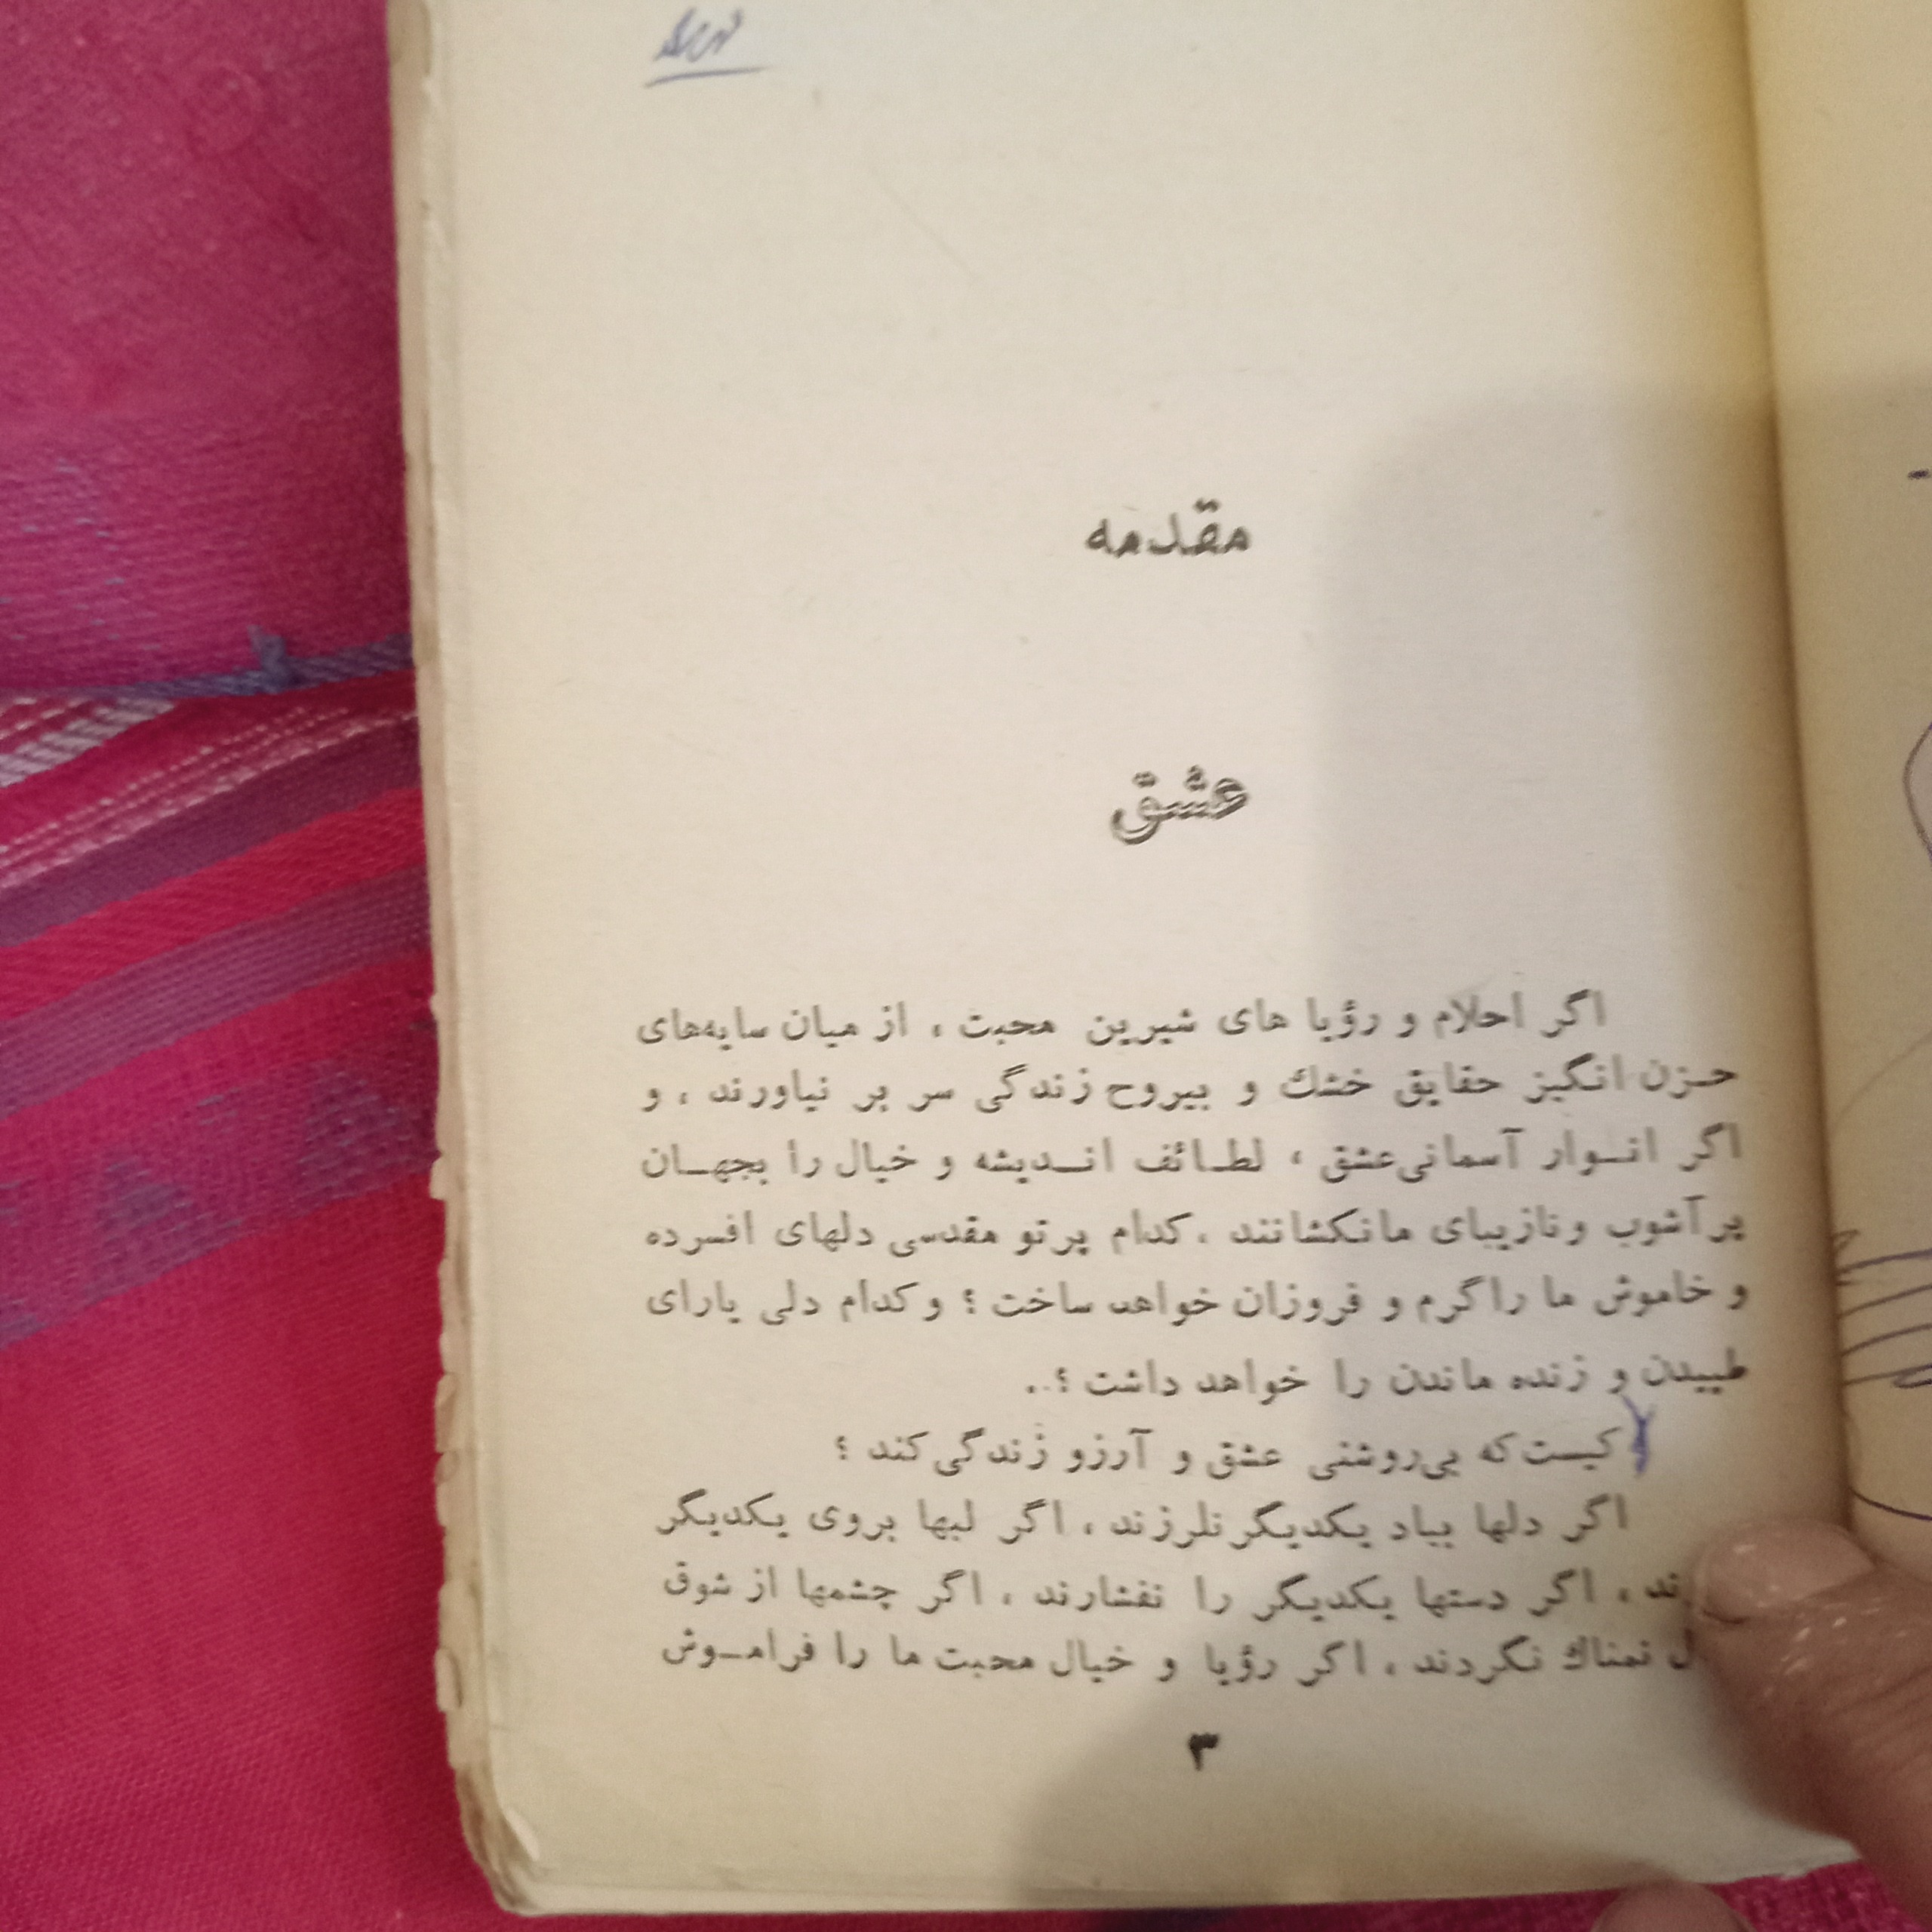 مقدمه
عشق
اگر احلام و رؤیا های شیرین محبت ، از میان سایه‌های
حـزن انگیز حقایق خشك و بیروح زندگی سر بر نیاورند ، و
اگر انــوار آسمانی عشق ، لطـائف انــدیشه و خیال را بجهــان
پر آشوب و نازیبای ما نکشانند ، کدام پرتو مقدسی دلهای افسرده
و خاموش ما را گرم و فروزان خواهد ساخت ؟ و کدام دلی یارای
طپیدن و زنده ماندن را خواهد داشت ؟..
کیست که بی‌روشنی عشق و آرزو زندگی کند ؟
اگر دلها بیاد یکدیگر نلرزند ، اگر لبها بروی یکدیگر
، اگر دستها یکدیگر را نفشارند ، اگر چشمها از شوق
نمناك نگردند ، اگر رؤیا و خیال محبت ما را فرامــوش
۳